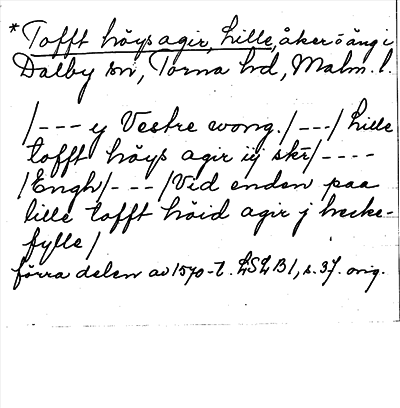 *Tofft höys agir, Lille, åker o äng i
Dalby sn, Torna hd, Malm. l.
/--- y Vestre wong./---/Lille
tofft höys agir iij skr/----
/Engh/---/Vid enden paa
lille tofft höid agir j hecke-
fylle/
förra delen av 1570-t. LSLB1, s. 37. orig.